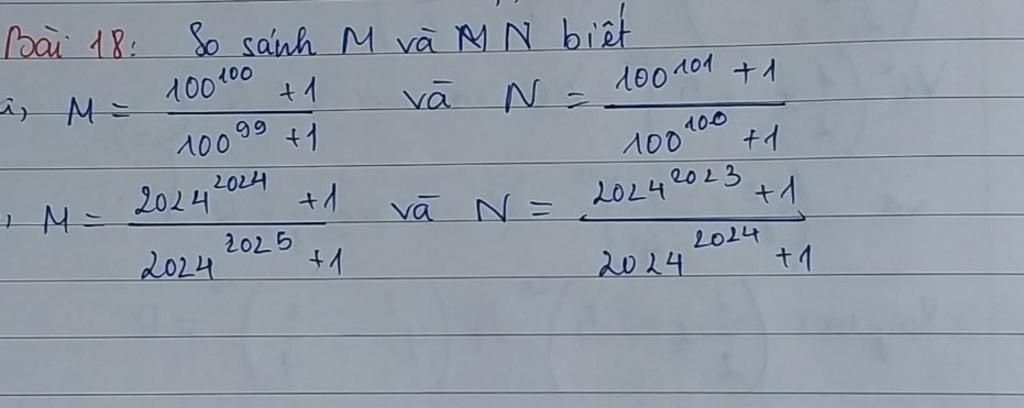 Bài 18: So sánh M và N biết
a, M = (100^100 + 1)/(100^99 + 1) và N = (100^101 + 1)/(100^100 + 1)
, M = (2024^2024 + 1)/(2024^2025 + 1) và N = (2024^2023 + 1)/(2024^2024 + 1)